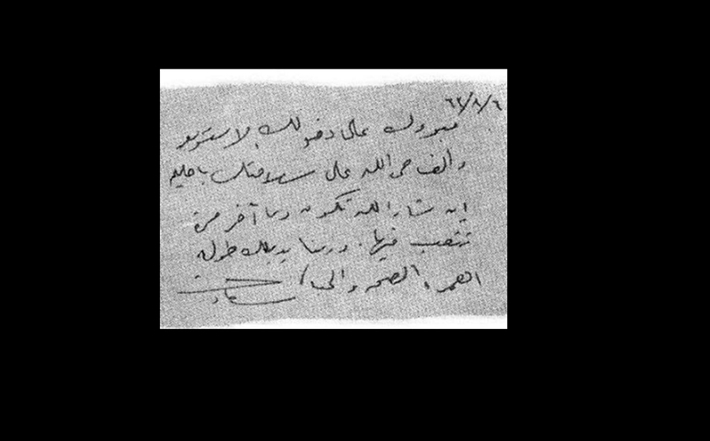 ٦/٨/٦٢
مبروك على دخولك الاستديو
والف حمدالله على سلامتك يا حليم
إن شاء الله تكون دي آخر مرة
تتعب فيها. وربنا يديلك طولة
العمر والصحة والحب
سعاد